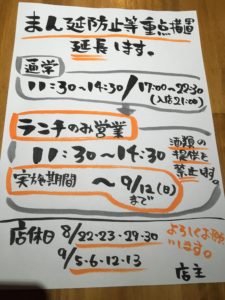 まん延防止等重点措置
延長します。
通常
11:30〜14:30/17:00〜22:30
(入店21:00)
ランチのみ営業
11:30〜14:30
酒類の
提供を
禁止します。
実施期間 〜9/12(日)
まで
店休日 8/22・23・29・30
9/5・6・12・13
よろしくお願い
いします。
店主